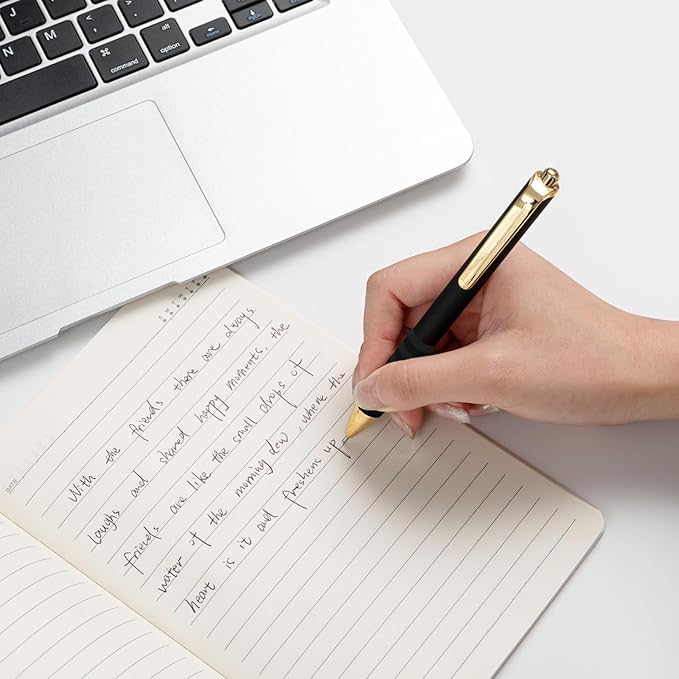 N
M
⌘
command
alt
option
S M T W T F S
DATE
With the friends there are always
laughs and shared happy moments, the
friends are like the small drops of
water of the morning dew, where the
heart is it and freshens up